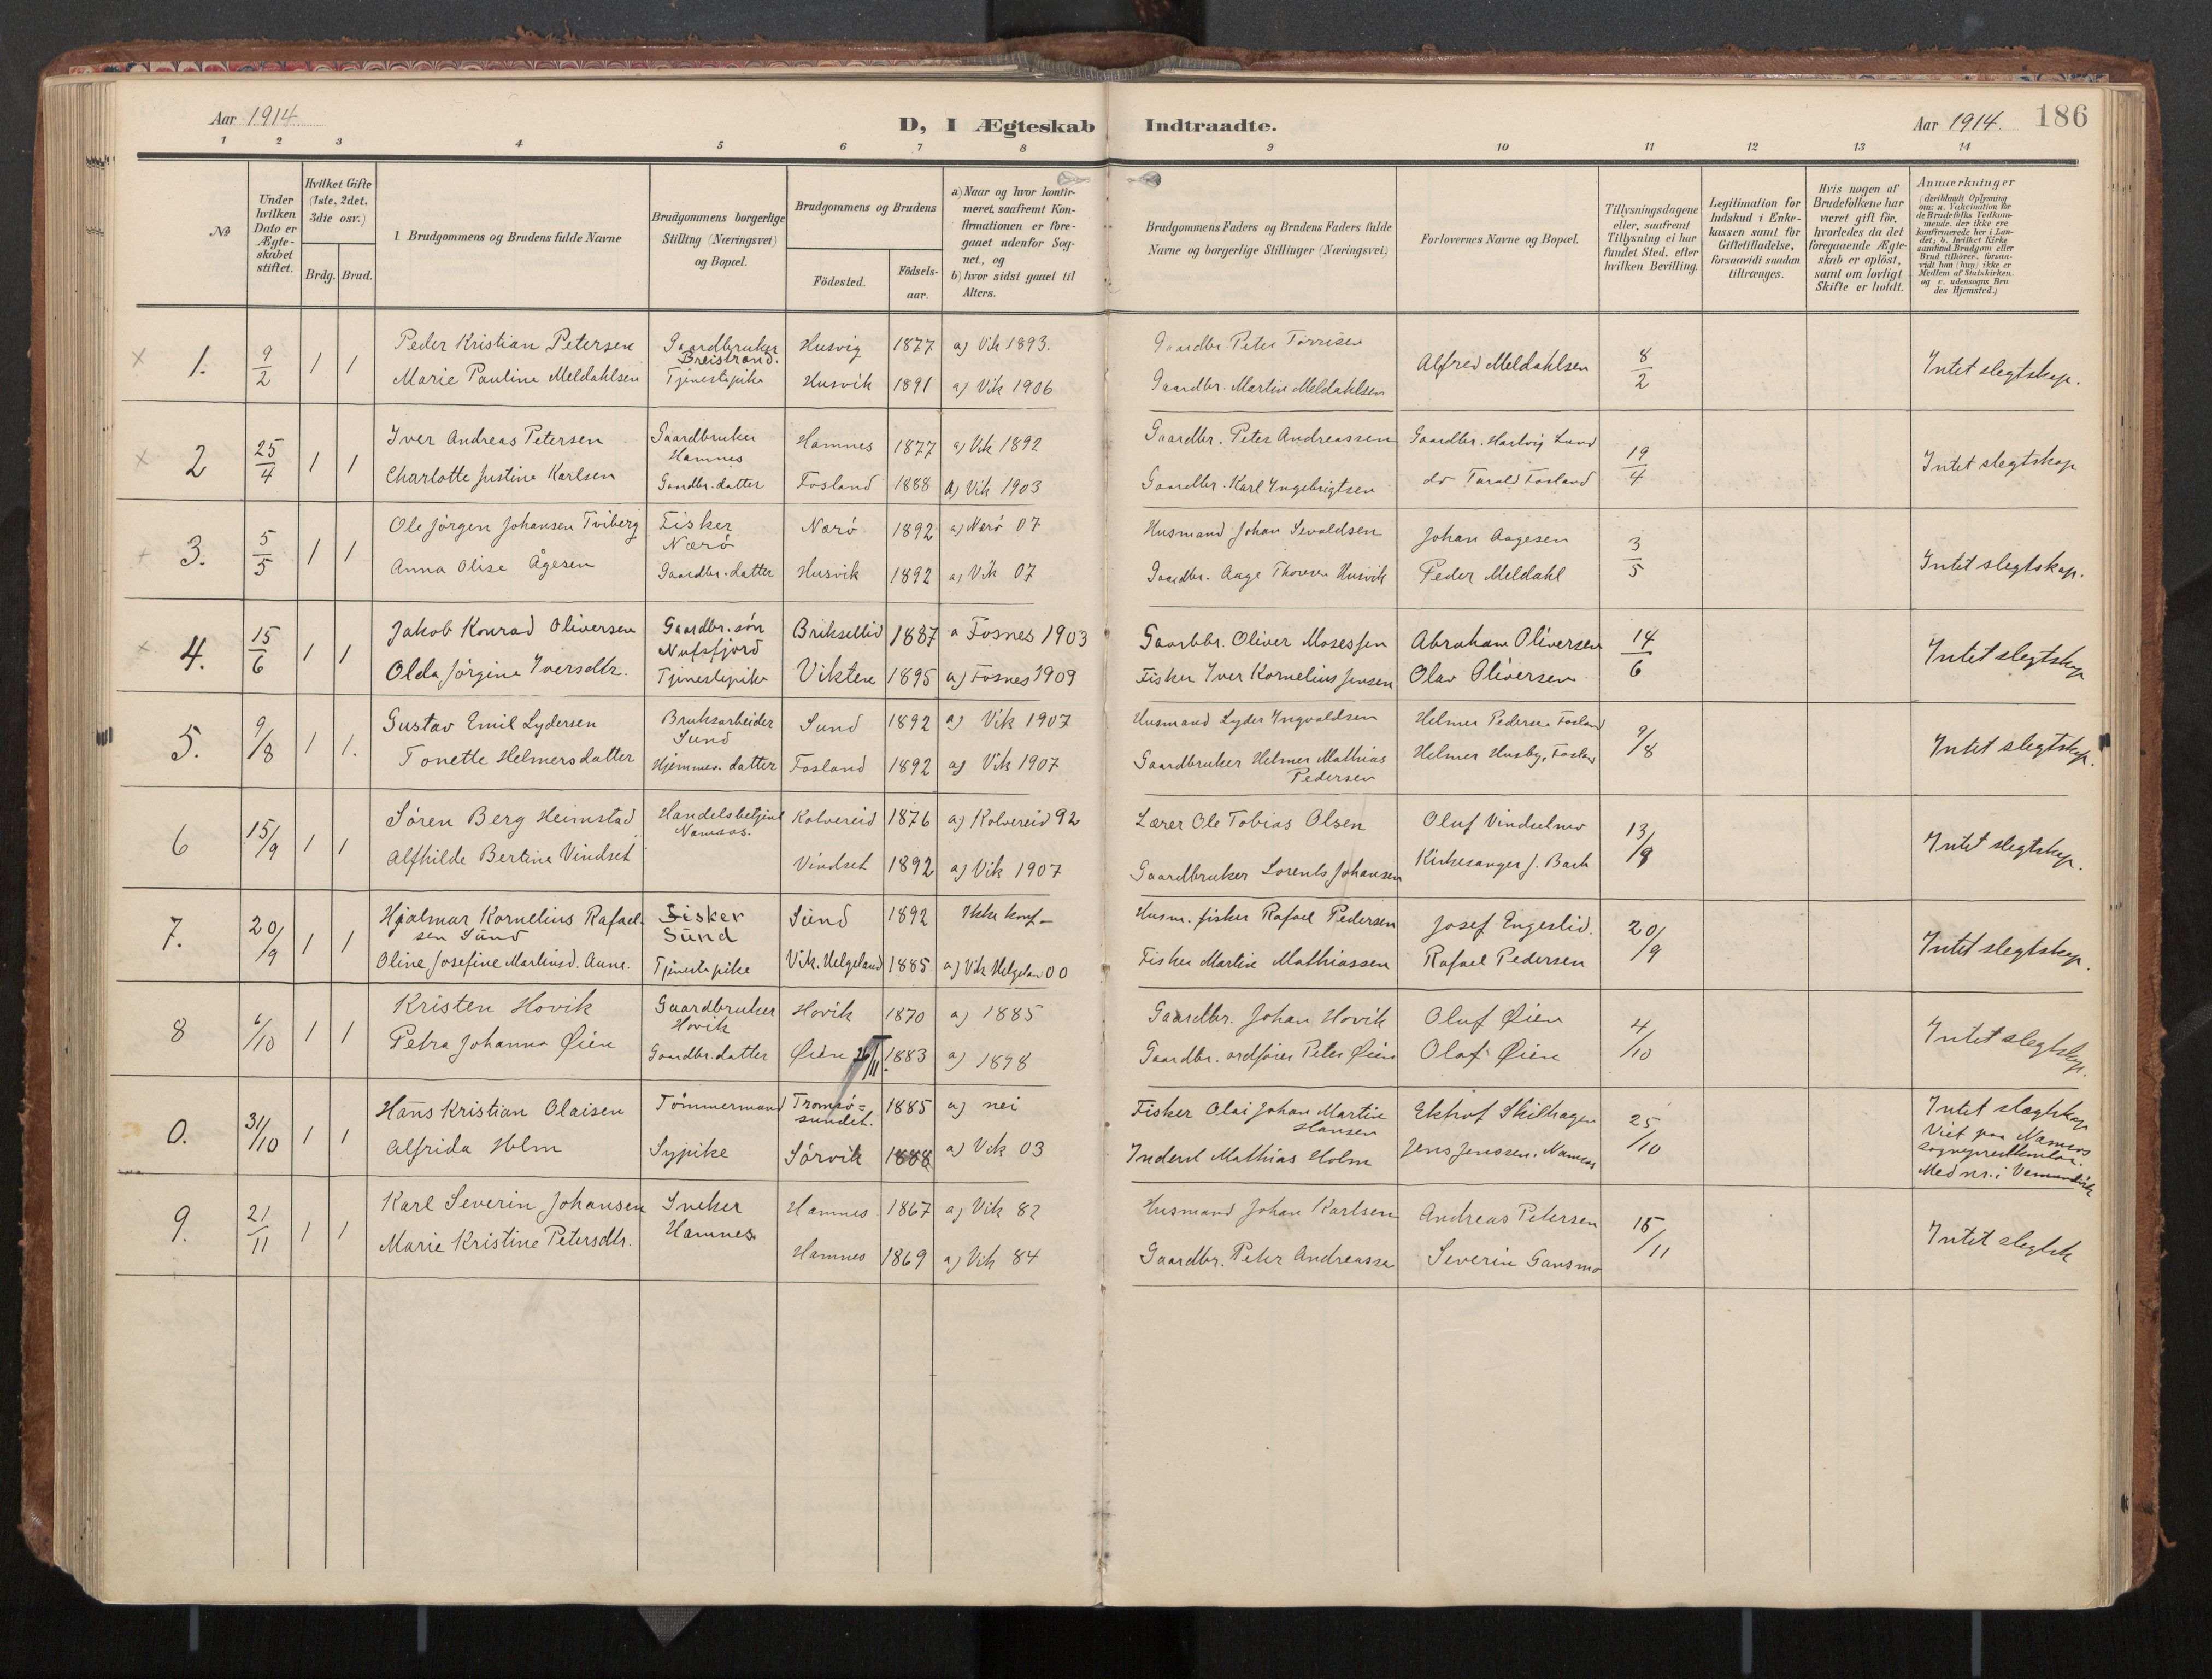 Aar 1914
D, I Ægteskab Indtraadte.
Aar 1914.
186
1 2 3 4 5 6 7 8 9 10 11 12 13 14
№
Under hvilken Dato er Ægteskabet stiftet.
Hvilket Gifte (1ste, 2det, 3die osv.)
Brdg. Brud.
1. Brudgommens og Brudens fulde Navne
Brudgommens borgerlige Stilling (Næringsvei) og Bopæl.
Brudgommens og Brudens
Födested. Födselsaar.
a) Naar og hvor konfirmeret, saafremt Konfirmationen er foregaaet udenfor Sognet, og
b) hvor sidst gaaet til Alters.
Brudgommens Faders og Brudens Faders fulde Navne og borgerlige Stillinger (Næringsvei)
Forlovernes Navne og Bopæl.
Tillysningsdagene eller, saafremt Tillysning ei har fundet Sted, efter hvilken Bevilling.
Legitimation for Indskud i Enkekassen samt for Giftetilladelse, forsaavidt saadan tiltrænges.
Hvis nogen af Brudefolkene har været gift för, hvorledes da det foregaaende Ægteskab er oplöst, samt om lovligt Skifte er holdt.
Anmærkninger (deriblandt Oplysning om: a. Vakcination for de Brudefolks Vedkommende, der ikke ere konfirmerede her i Landet; b. hvilket Kirkesamfund Brudgom eller Brud tilhörer, forsaavidt han (hun) ikke er Medlem af Statskirken, og c. udensogns Brudes Hjemsted.)
× 1. 9/2 1 1 Peder Kristian Petersen Gaardbruker Breistrand. Husvig 1877 a) Vik 1893. Gaardbr. Peter Torrisen Alfred Meldahlsen 8/2 Intet slegtskap.
Marie Pauline Meldahlsen Tjenestepike Husvik 1891 a) Vik 1906 Gaardbr. Martin Meldahlsen
× 2 25/4 1 1 Iver Andreas Petersen Gaardbruker Hamnes Hamnes 1877 a) Vik 1892 Gaardbr. Peter Andreassen Gaardbr. Hartvig Lund 19/4 Intet slegtskap
Charlotte Justine Karlsen Gaardbr. datter Fosland 1888 a) Vik 1903 Gaardbr. Karl Ingebrigtsen do Tarald Fosland
+ 3. 5/5 1 1 Ole Jörgen Johansen Tviberg Fisker Nærö Nærö 1892 a) Nærö 07 Husmand Johan Sevaldsen Johan Aagesen 3/5 Intet slegtskap.
Anna Olise Ågesen Gaardbr. datter Husvik 1892 a) Vik 07 Gaardbr. Aage Thoresen Husvik Peder Meldahl
× 4. 15/6 1 1 Jakob Konrad Oliversen Gaardbr. sön Nufsfjord 1887 a Fosnes 1903 Gaardbr. Oliver Mosessen Abraham Oliversen 14/6 Intet slegtskap
Olda Jörgine Iversdtr. Tjenestepike Vikten 1895 a) Fosnes 1909 Fisker Iver Kornelius Jensen Olav Oliversen
5. 9/8 1 1. Gustav Emil Lydersen Bruksarbeider Sund Sund 1892 a) Vik 1907 Husmand Lyder Ingvaldsen Helmer Pedersen Fosland 9/8 Intet slegtskap.
Tonette Helmersdatter Hjemmev. datter Fosland 1892 a) Vik 1907 Gaardbruker Helmer Mathias Pedersen Helmer Husby, Fosland
6 15/9 1 1 Sören Berg Heimstad Handelsbetjent Namsos. Kolvereid 1876 a) Kolvereid 92 Lærer Ole Tobias Olsen Oluf 13/9 Intet slegtskap.
Alfhilde Bertine Vindset Vindset 1892 a) Vik 1907 Gaardbruker Lorents Johansen Kirkesanger J. Bach
7. 20/9 1 1 Hjalmar Kornelius Rafaelsen Sund Fisker Sund Sund 1892 Ikke konf. Husm. fisker Rafael Pedersen Josef Engeslid. 20/9 Intet slegtskap.
Oline Josefine Martinsd. Aune. Tjenestepike Vik. Helgeland 1885 a) Vik Helgeland 00 Fisker Martin Mathiassen Rafael Pedersen
8 6/10 1 1 Kristen Hovik Gaardbruker Hovik Hovik 1870 a) 1885 Gaardbr. Johan Hovik Oluf Øien 4/10 Intet slegtskap.
Petra Johanna Øien Gaardbr. datter Øien 26/11. 1883 a) 1898 Gaardbr. ordförer Peter Øien Olaf Øien
0. 31/10 1 1 Hans Kristian Olaisen Tömmermand Tromsö=sundet. 1885 a) nei Fisker Olai Johan Martin Hansen Ekhof Skilhagen 25/10 Intet slægtskap
Alfrida Holm Sypike Sörvik 1888 a) Vik 03 Inderst Mathias Holm Jens Jenssen, Namsos Viet paa Namsos sogneprestkontor. Med nr. i
9. 21/11 1 1 Karl Severin Johansen Sneker Hamnes. Hamnes 1867 a) Vik 82 Husmand Johan Karlsen Andreas Petersen 15/11 Intet slegtsk
Marie Kristine Petersdtr. Hamnes 1869 a) Vik 84 Gaardbr. Peter Andreassen Severin Gansmo